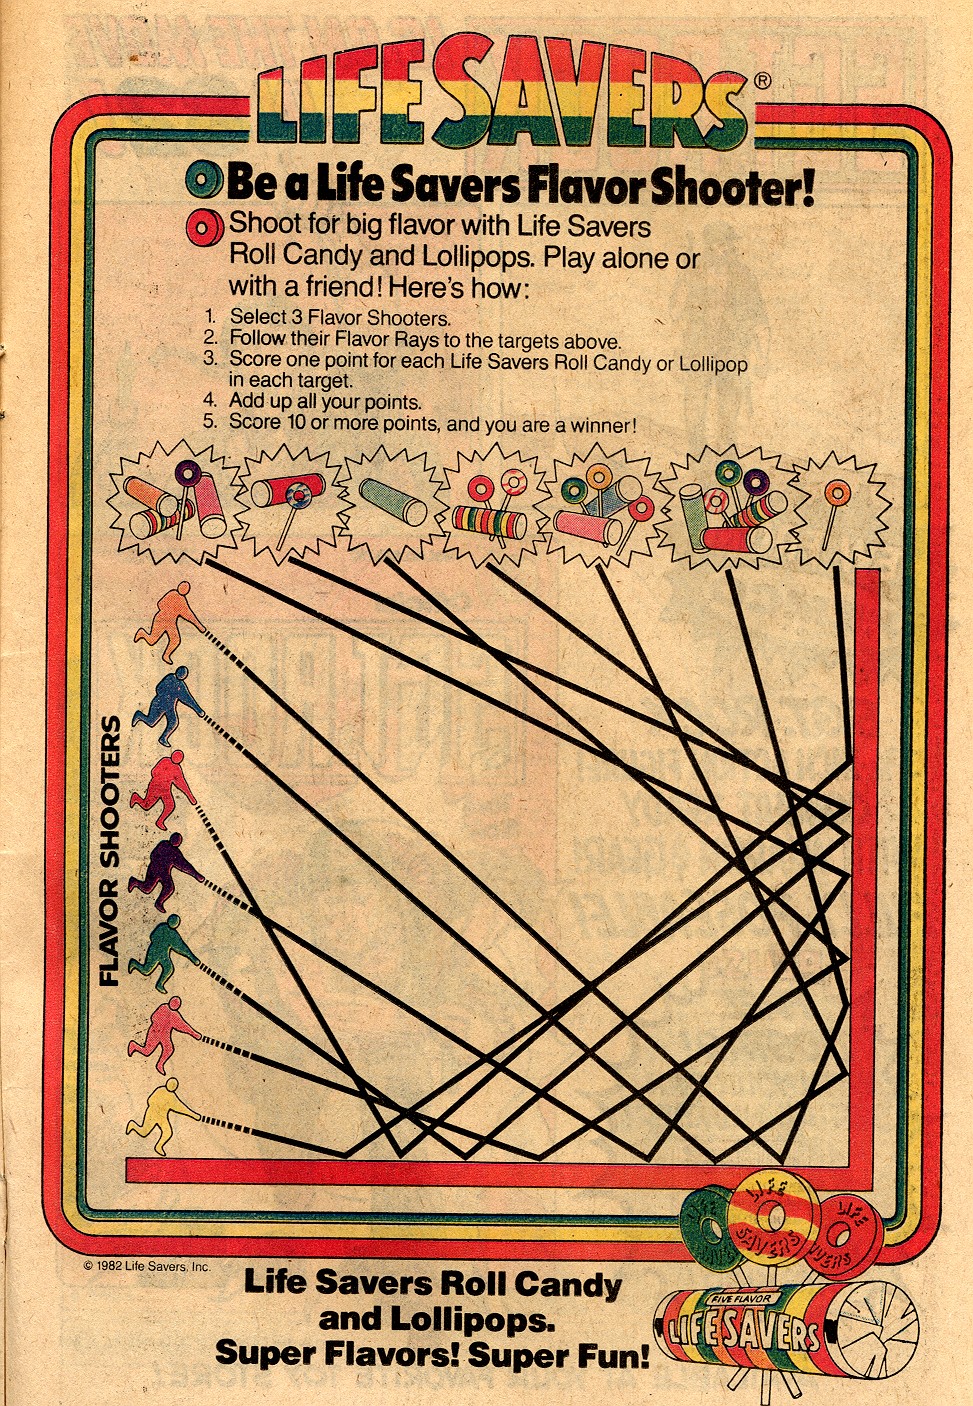 LIFE SAVERS®
Be a Life Savers Flavor Shooter!
Shoot for big flavor with Life Savers
Roll Candy and Lollipops. Play alone or
with a friend! Here's how:
1. Select 3 Flavor Shooters.
2. Follow their Flavor Rays to the targets above.
3. Score one point for each Life Savers Roll Candy or Lollipop
in each target.
4. Add up all your points.
5. Score 10 or more points, and you are a winner!
FLAVOR SHOOTERS
© 1982 Life Savers, Inc.
Life Savers Roll Candy
and Lollipops.
Super Flavors! Super Fun!
LIFE
LIFE
SAVERS
LIFE
SAVERS
FIVE FLAVOR
LIFE SAVERS